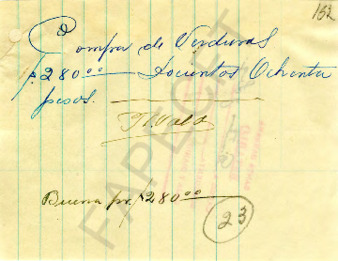 152
Compra de Verduras
$280.00 Docientos Ochenta
pesos.
Buena pr. $280.00
23
FAPECFT